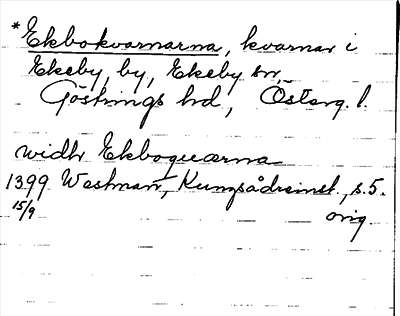 *Ekbokvarnarna, kvarnar i
Ekeby, by, Ekeby sn,
Göstrings hd, Österg. l.
widh Ekboquarna
1399 Westman, Kungsådreinst., s. 5.
15/9 orig.